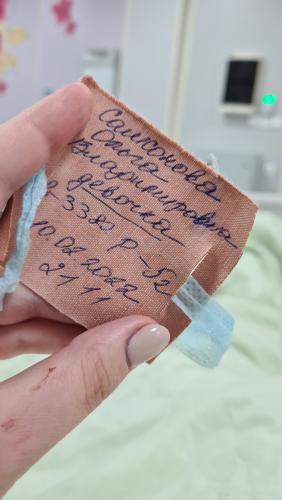 Самсонова
Ольга
Владимировна
девочка
3380 Р-52
10.02.2022
21 11